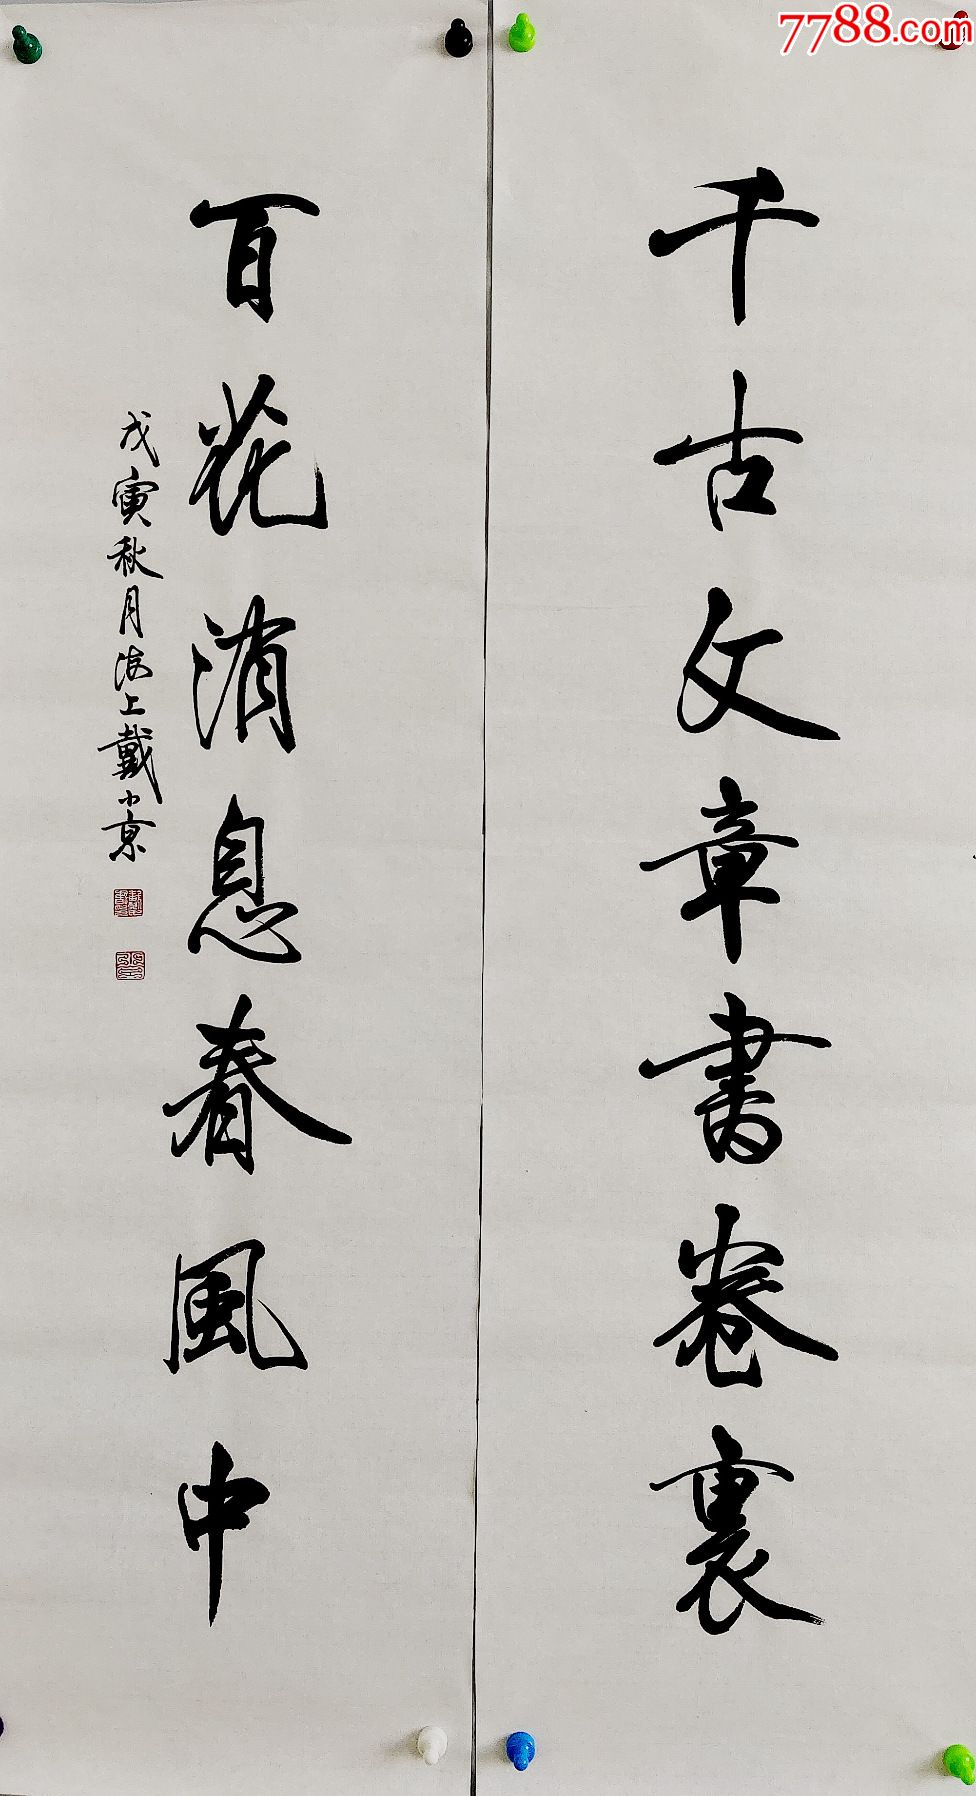 7788.com
千古文章書卷裏
百花消息春風中
戊寅秋月海上戴小京